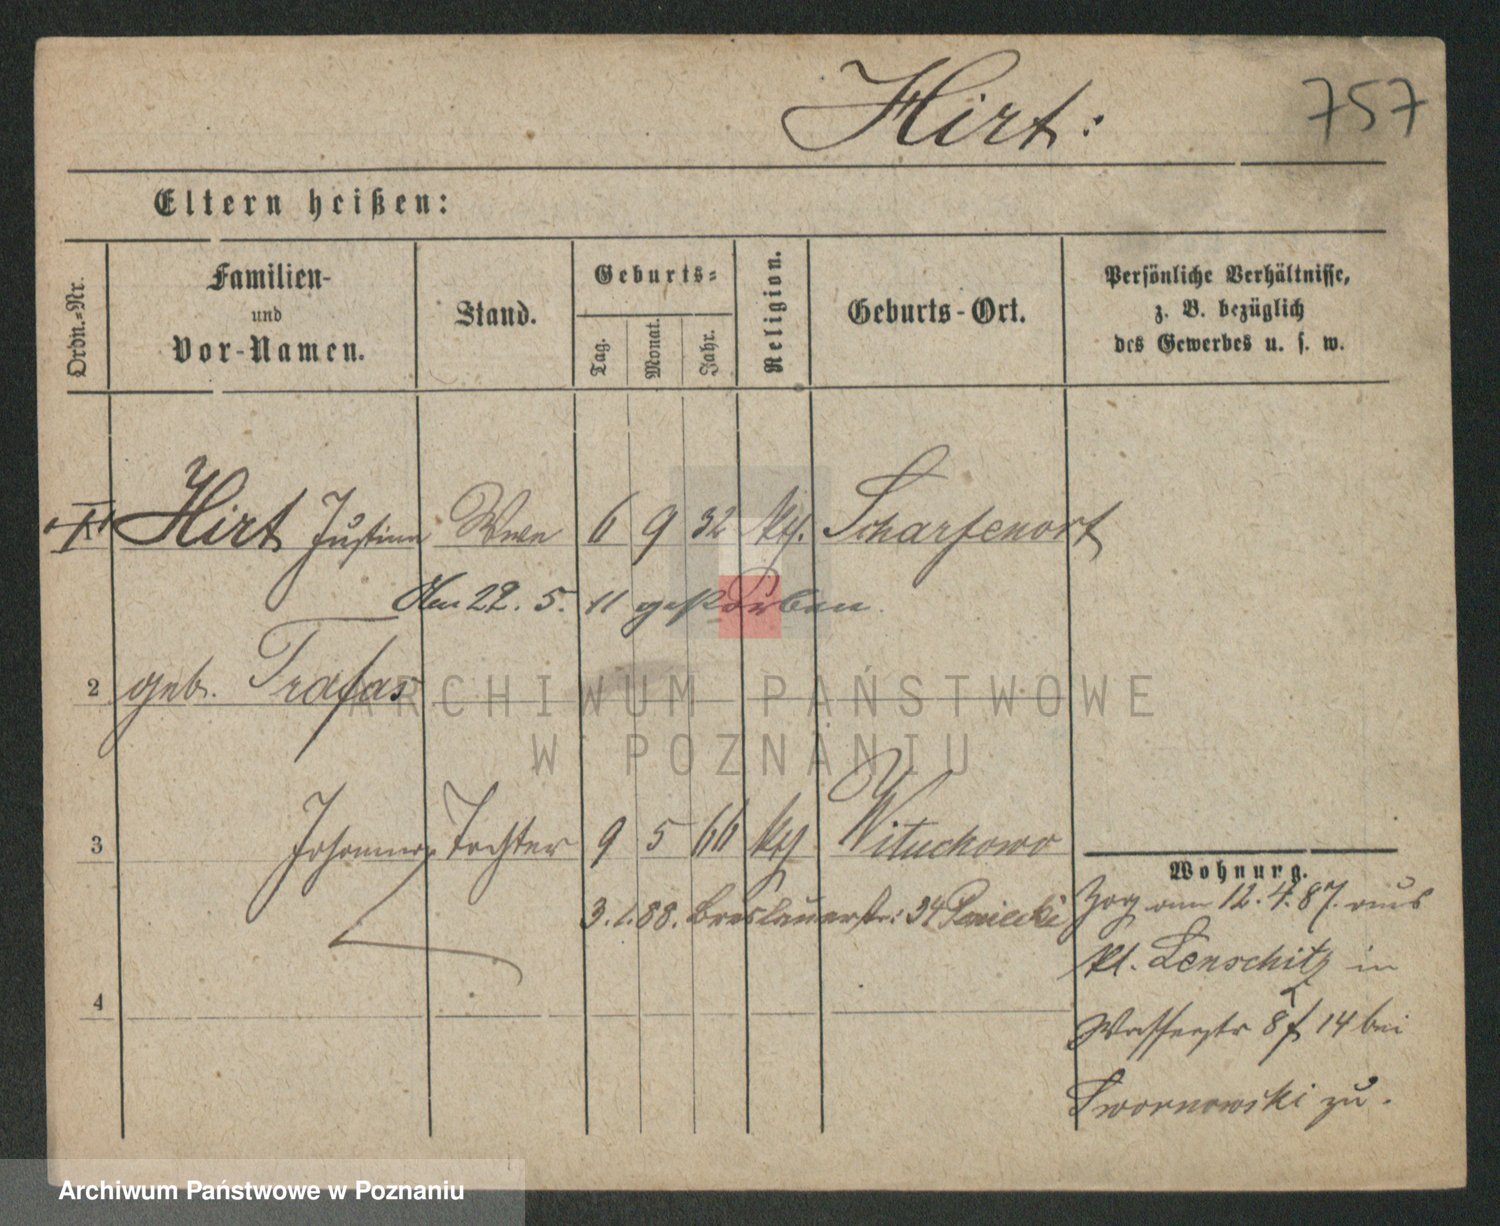 Hirt: 757
Eltern heißen:
Ordn.-Nr.
Familien-
und
Vor-Namen.
Stand.
Geburts-
Tag.
Monat.
Jahr.
Religion.
Geburts-Ort.
Persönliche Verhältnisse,
z. B. bezüglich
des Gewerbes u. s. w.
Hirt Justina Wwe 6 9 32 kth. Scharfenort
Am 22. 5. 11 gestorben.
2 geb. Trafas
ARCHIWUM PAŃSTWOWE
W POZNANIU
3 Johanna Tochter 9 5 66 kth Wituchowo
Wohnung.
3.1.88. Breslauerstr: 34
Zog am 12.4.87. aus
kl. Lenschitz in
Wasserstr 8/ 14 bei
Swornowski zu.
4
Archiwum Państwowe w Poznaniu